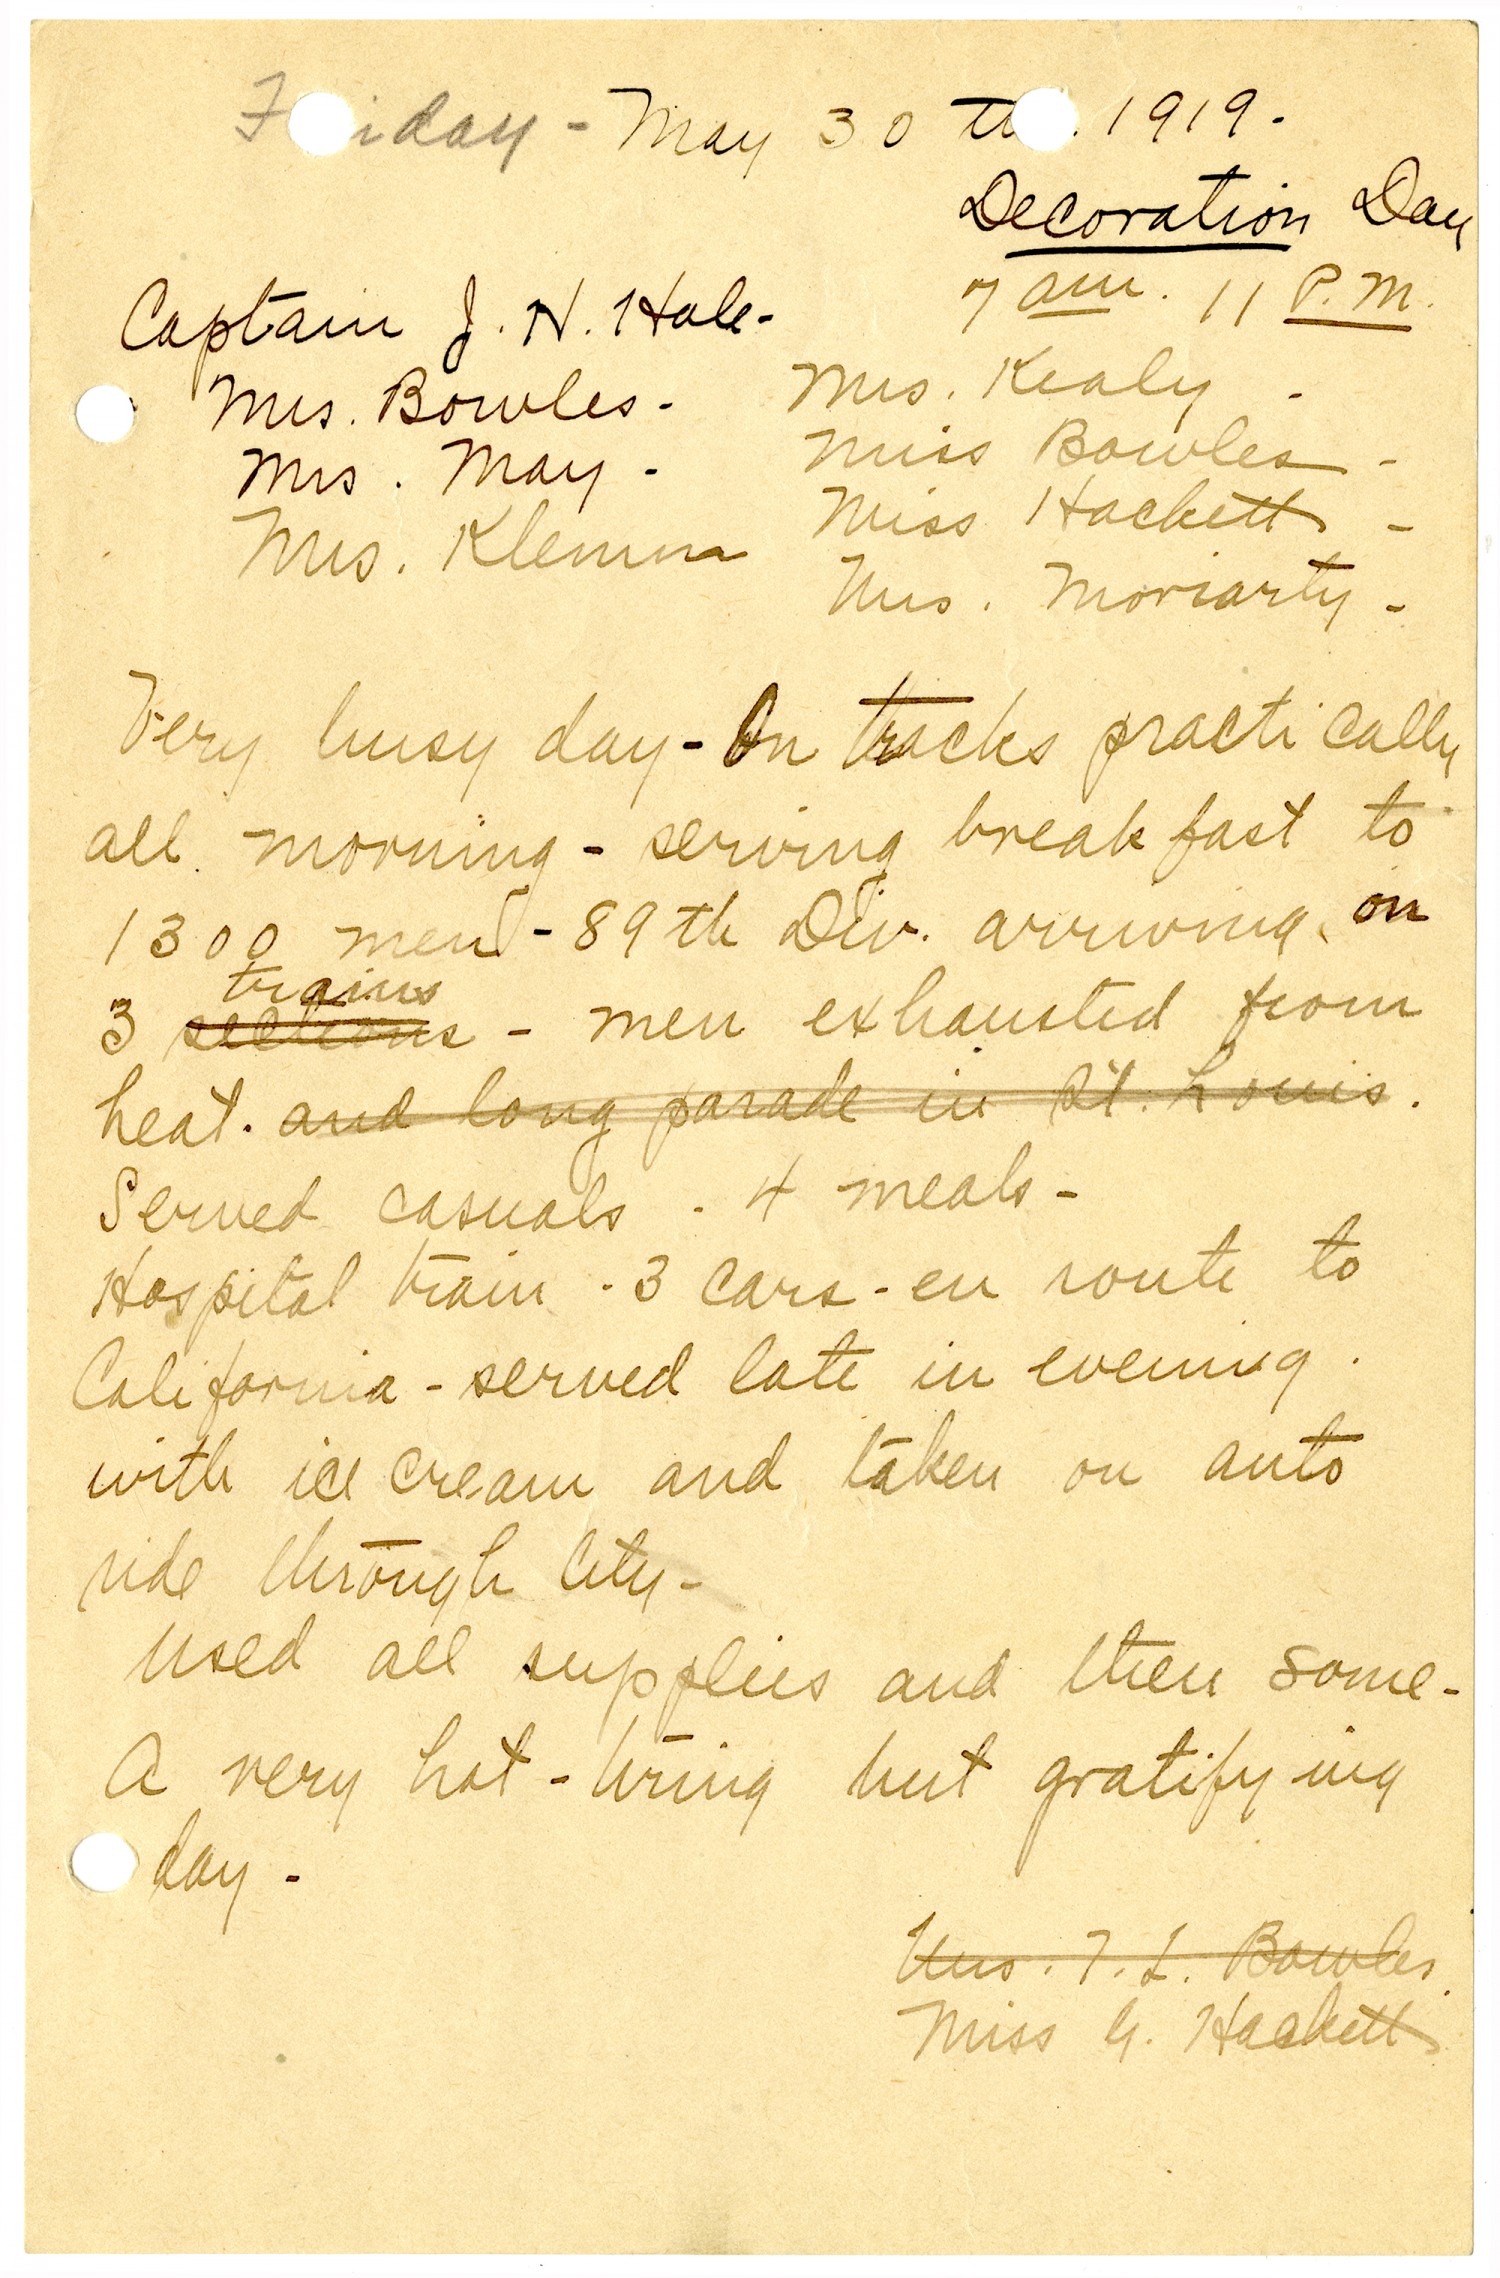 Friday - May 30th. 1919.
Decoration Day
7 am. 11 P.M.
Captain J. H. Hale-
Mrs. Bowles-
Mrs. May-
Mrs. Klemm
Mrs. Kealy -
Miss Bowles -
Miss Hackett -
Mrs. Moriarty -
Very busy day - On tracks practically
all morning - serving breakfast to
1300 men - 89th Div. arriving on
trains
3 sections - men exhausted from
heat. and long parade in St. Louis.
Served casuals - 4 meals -
Hospital train - 3 cars - en route to
California - served late in evening.
with ice cream and taken on auto
ride through City -
Used all supplies and then some -
A very hot - tiring but gratifying
day -
Mrs. T. L. Bowles.
Miss G. Hackett